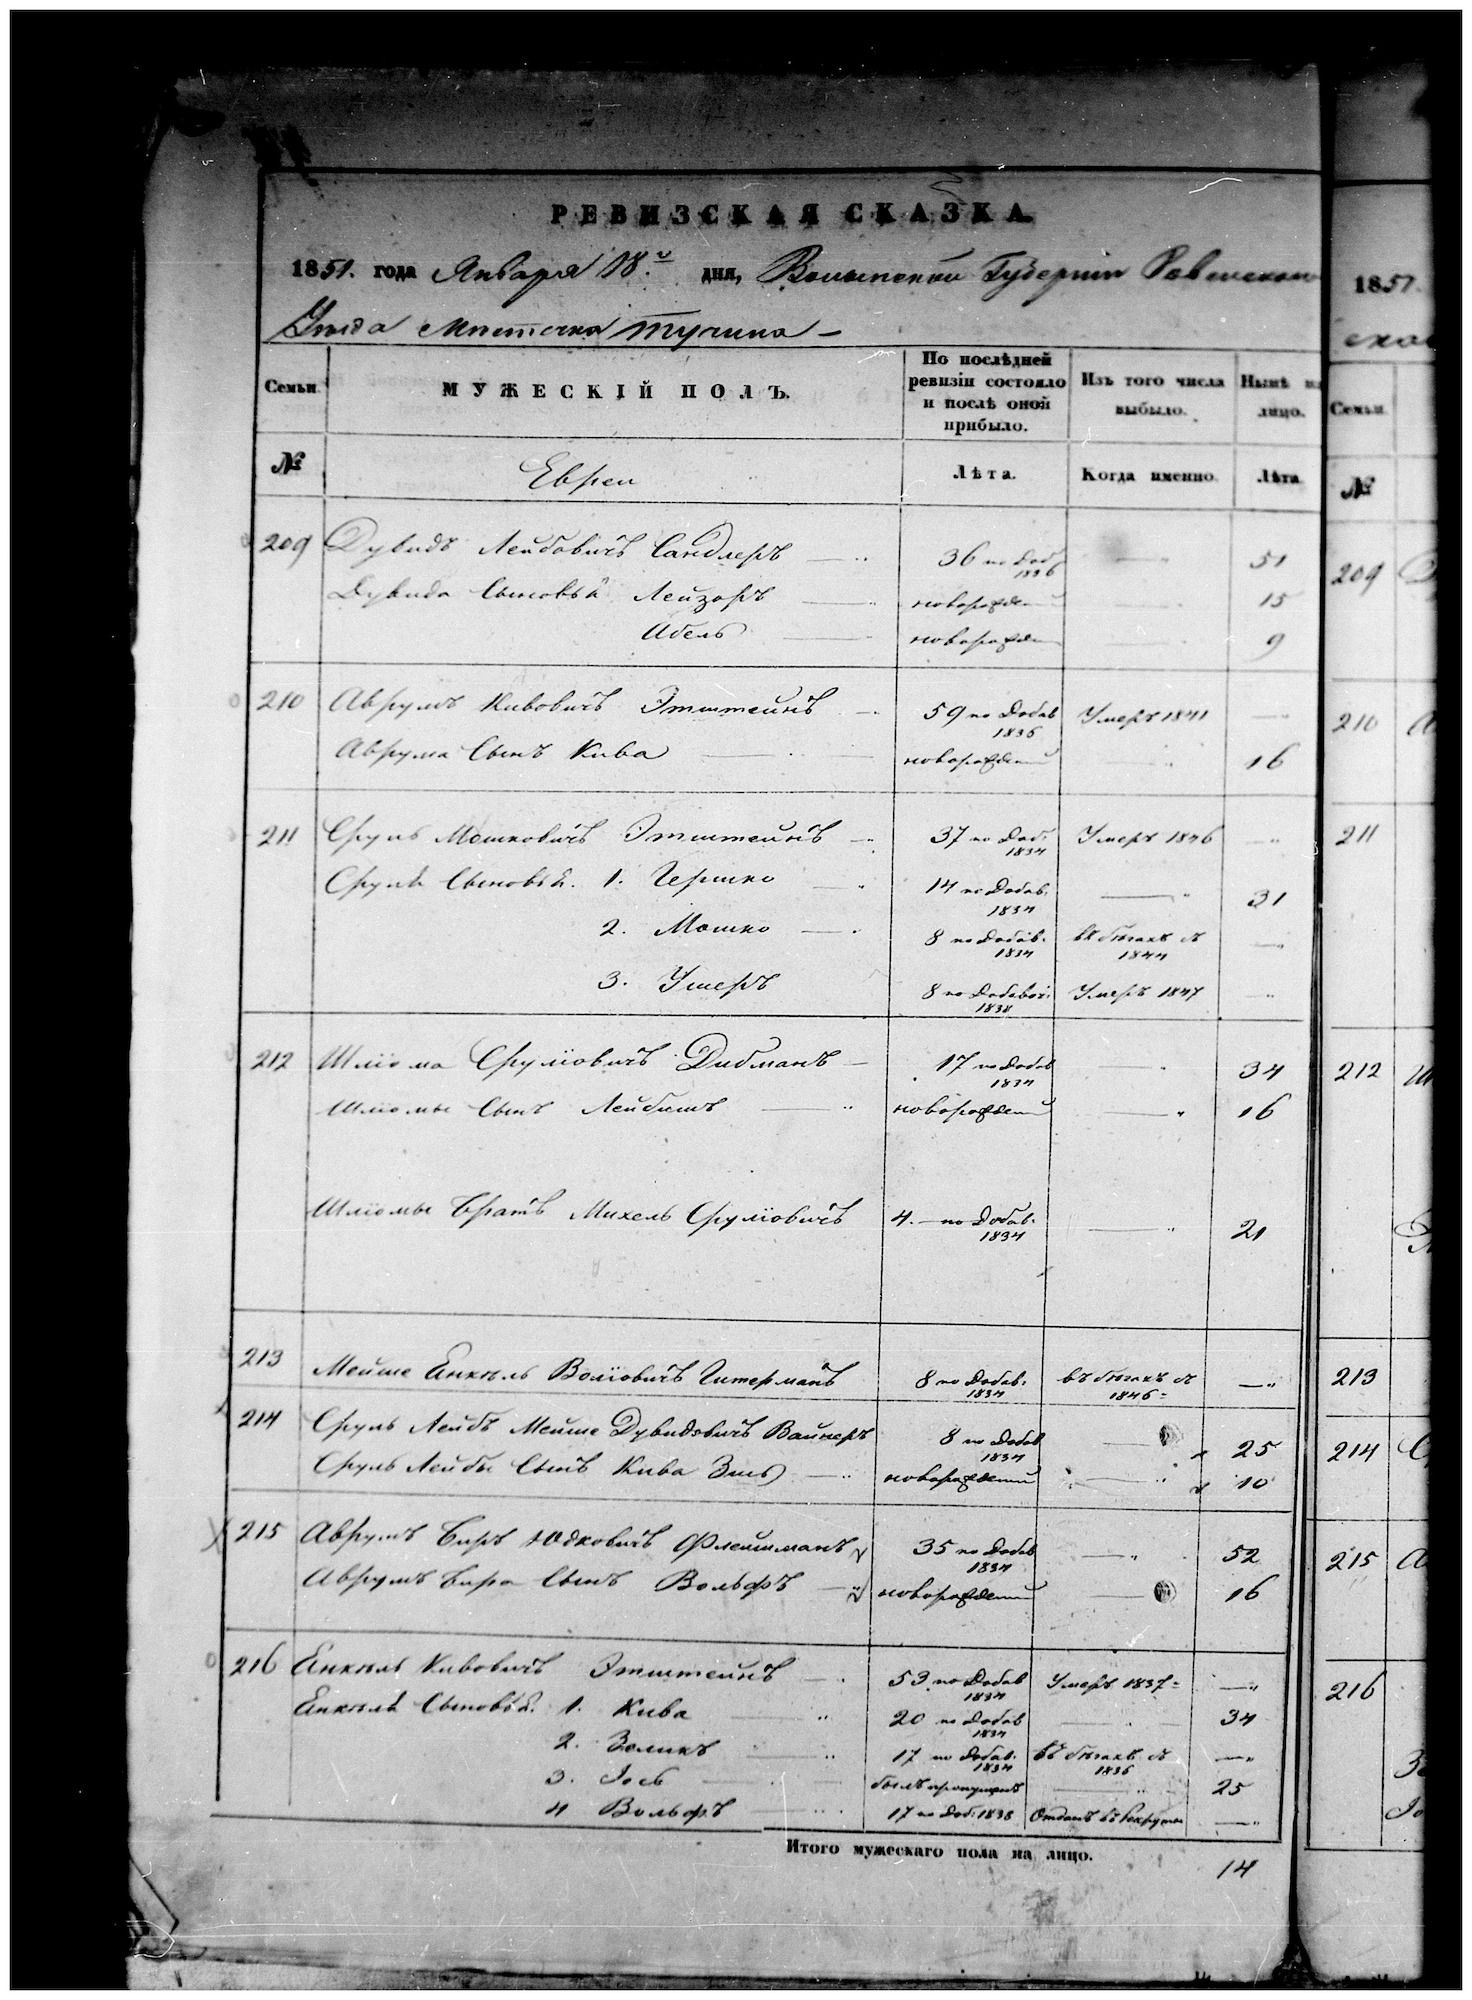 РЕВИЗСКАЯ СКАЗКА.
1851. года Января 18. дня, Волынской Губернiи Ровенскаго
Уѣзда Мѣстечка Тучина
Семьи. МУЖЕСКIЙ ПОЛЪ. По послѣдней ревизiи состояло и послѣ оной прибыло. Изъ того числа выбыло. Нынѣ на лицо.
№ Евреи Лѣта. Когда именно. Лѣта
209 Дувидъ Лейбовичъ Сандлеръ 36 по Доб. 1836 51
Дувида Сыновья Лейзоръ новорожден 15
Абель новорожден 9
210 Аврумъ Кивовичъ Этштейнъ 59 по Добав 1836 Умеръ 1841
Аврума Сынъ Кива новорожденный 16
211 Сруль Мошковичъ Этштейнъ 37 по Доб. 1834 Умеръ 1846
Сруля Сыновья. 1. Гершко 14 по Добав. 1834 31
2. Мошко 8 по Добав. 1834 въ бѣгахъ съ 1844
3. Ушеръ 8 по Добавоч. 1838 Умеръ 1847
212 Шлiома Срулiовичъ Дибманъ 17 по Добав 1834 34
Шлiомы Сынъ Лейбишъ новорожденный 16
Шлiомы Братъ Михель Срулiовичъ 4. по Добав. 1834 21
213 Мейше Енкель Волiовичъ Гитерманъ 8 по Добав. 1834 въ бѣгахъ съ 1846
214 Сруль Лейбъ Мейше Дувидовичъ Вайнеръ 8 по Добав 1834 25
Сруль Лейбы Сынъ Кива Зись новорожденный 10
215 Аврумъ Беръ Юдковичъ Флейшманъ 35 по Добав 1834 52
Аврумъ Бера Сынъ Вольфъ новорожденный 16
216 Енкель Кивовичъ Этштейнъ 53 по Добав 1834 Умеръ 1837
Енкеля Сыновья. 1. Кива 20 по Добав 1834 34
2. Зеликъ 17 по Добав. 1834 въ бѣгахъ съ 1836
3. Iось былъ пропущенъ 25
4 Вольфъ 17 по Доб. 1838 Отданъ въ Рекруты
Итого мужескаго пола на лицо. 14
1851
Семьи.
№
209
210
211
212
213
214
215
216